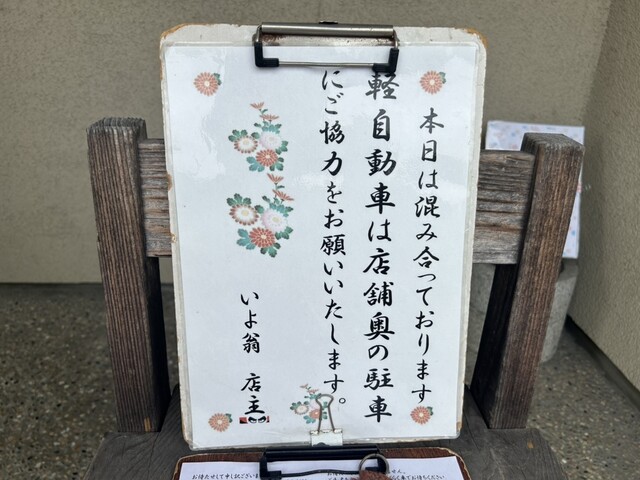 本日は混み合っております
軽自動車は店舗奥の駐車
にご協力をお願いいたします。
いよ翁 店主
お待たせして申し訳ございま